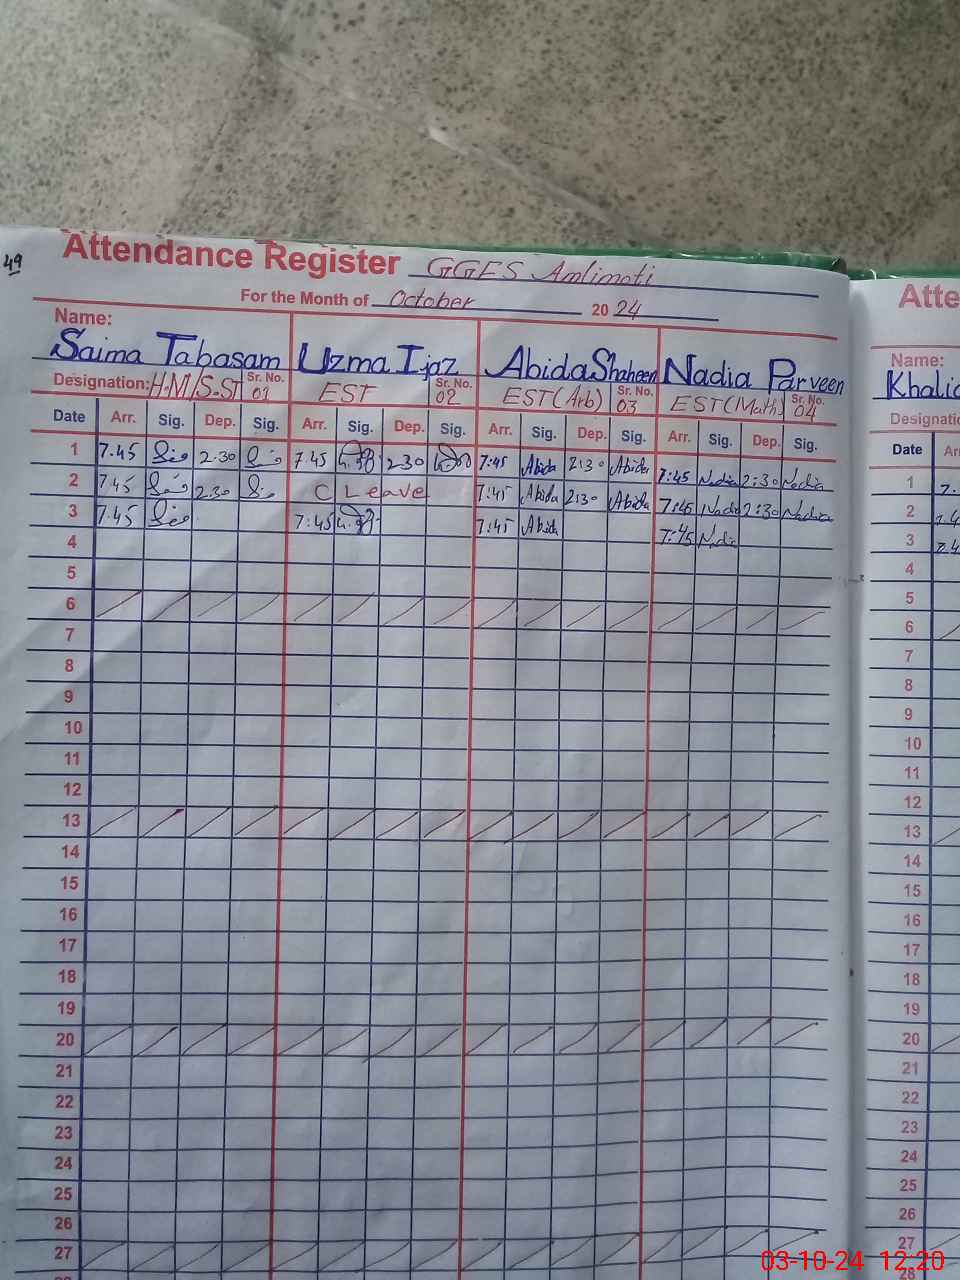 49
Attendance Register GGES Amlimoti
For the Month of October 2024
Name:
Saima Tabasam Uzma Ijaz Abida Shaheen Nadia Parveen
Designation: H.M/S.ST Sr. No. 01 EST Sr. No. 02 EST (Arb) Sr. No. 03 EST (Math) Sr. No. 04
Date Arr. Sig. Dep. Sig. Arr. Sig. Dep. Sig. Arr. Sig. Dep. Sig. Arr. Sig. Dep. Sig.
1 7.45 2.30 7.45 2.30 7:45 Abida 2:30 Abida 7:45 Nadia 2:30 Nadia
2 7.45 2.30 C Leave 7:45 Abida 2:30 Abida 7:45 Nadia 2:30 Nadia
3 7.45 7:45 7:45 Abida 7:45 Nadia
4
5
6
7
8
9
10
11
12
13
14
15
16
17
18
19
20
21
22
23
24
25
26
27
Atte
Name:
Khalid
Designatio
Date Ar
1 7.
2 7.4
3 7.4
4
5
6
7
8
9
10
11
12
13
14
15
16
17
18
19
20
21
22
23
24
25
26
27
28
03-10-24 12.20